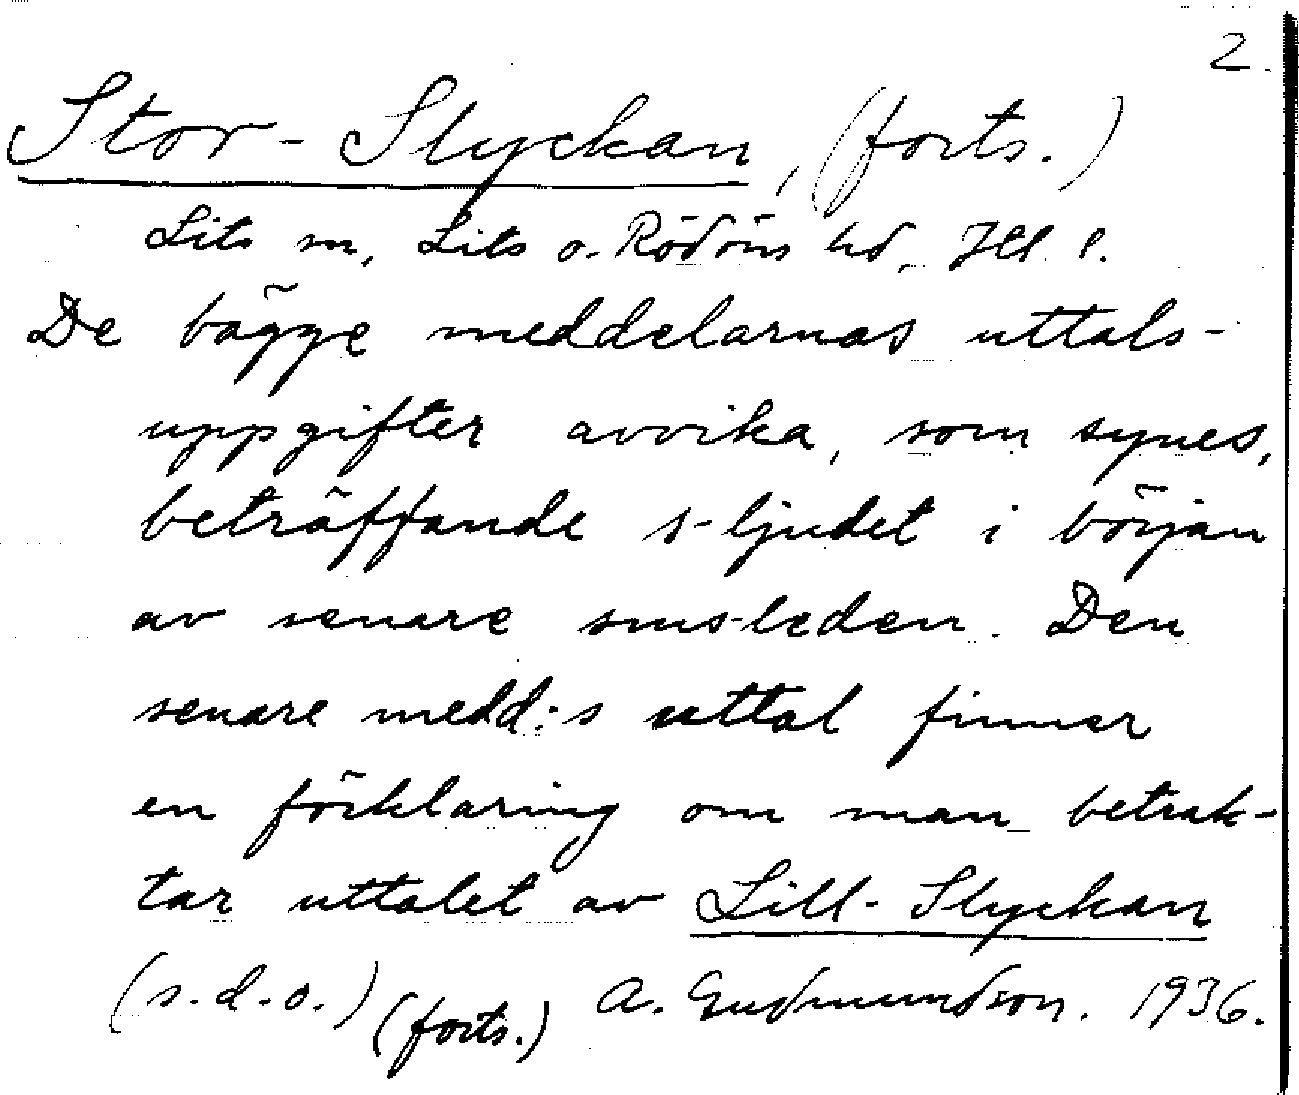 2.
Stor-Slyckan, (forts.)
Lits sn, Lits o. Rödöns hd, Jtl. l.
De bägge meddelarnas uttals-
uppgifter avvika, som synes,
beträffande s-ljudet i början
av senare sms-leden. Den
senare medd:s uttal finner
en förklaring om man betrak-
tar uttalet av Lill-Slyckan
(s.d.o.) (forts.) A. Gudmundson. 1936.